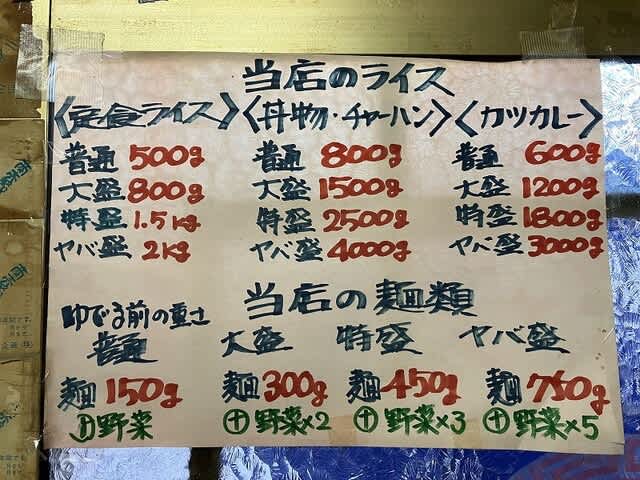 当店のライス
〈定食ライス〉〈丼物・チャーハン〉〈カツカレー〉
普通 500g 普通 800g 普通 600g
大盛 800g 大盛 1500g 大盛 1200g
特盛 1.5kg 特盛 2500g 特盛 1800g
ヤバ盛 2kg ヤバ盛 4000g ヤバ盛 3000g
当店の麺類
ゆでる前の重さ
普通 大盛 特盛 ヤバ盛
麺150g 麺300g 麺450g 麺750g
野菜 ⊕野菜×2 ⊕野菜×3 ⊕野菜×5